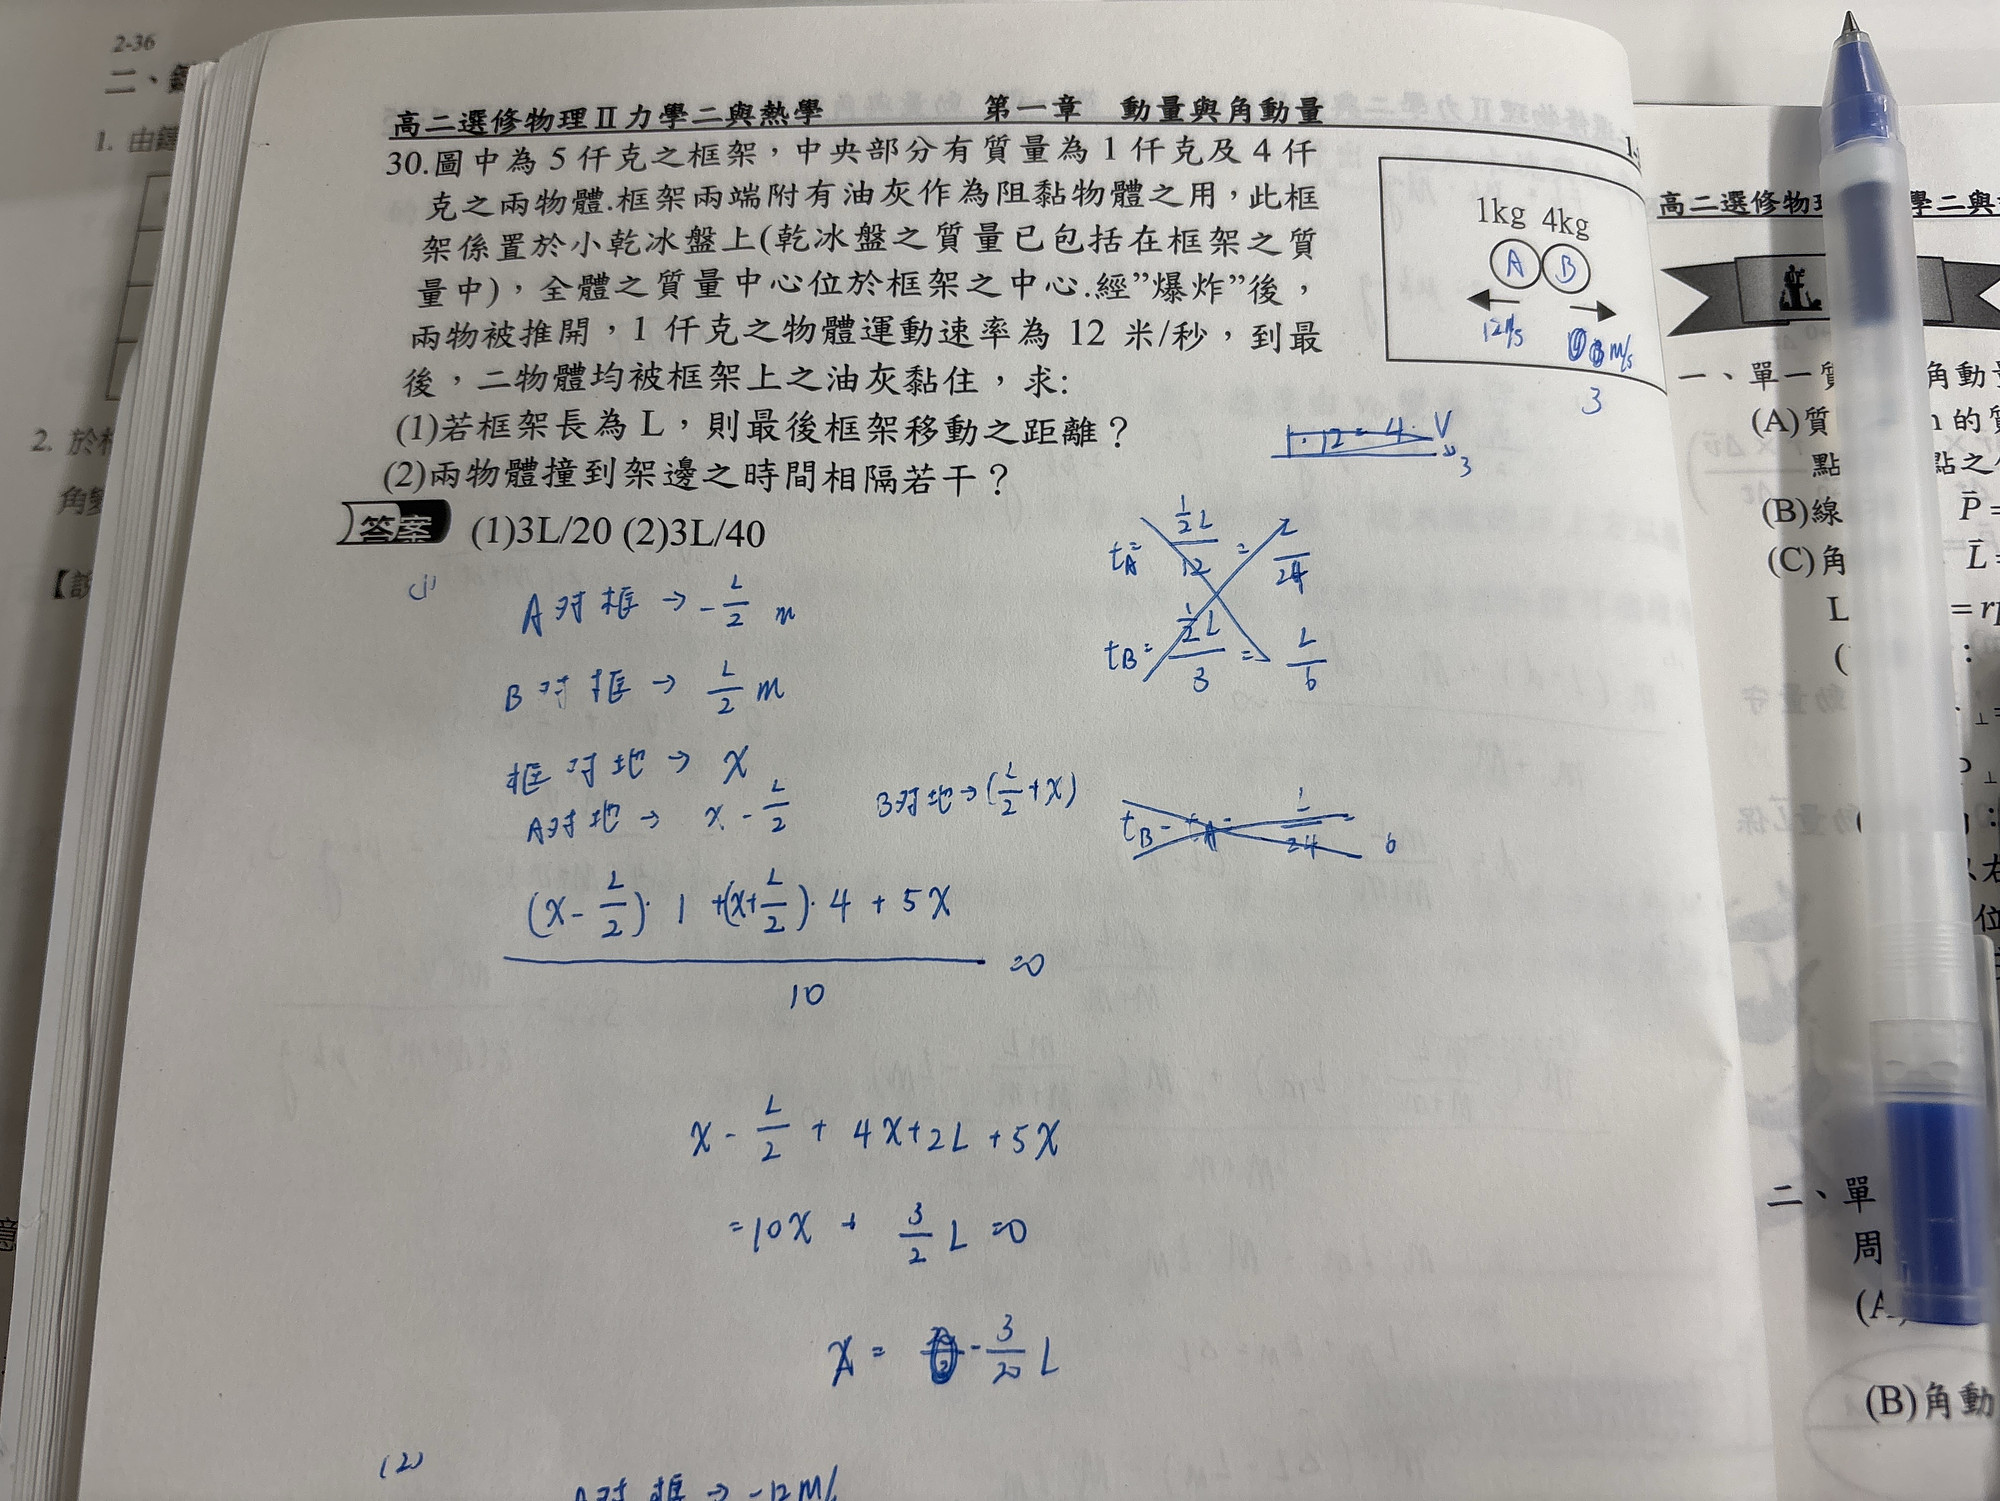 2-36
二、
1. 由
2. 於
高二選修物理Ⅱ力學二與熱學 第一章 動量與角動量
30.圖中為 5 仟克之框架，中央部分有質量為 1 仟克及 4 仟
克之兩物體.框架兩端附有油灰作為阻黏物體之用，此框
架係置於小乾冰盤上(乾冰盤之質量已包括在框架之質
量中)，全體之質量中心位於框架之中心.經”爆炸”後，
兩物被推開，1 仟克之物體運動速率為 12 米/秒，到最
後，二物體均被框架上之油灰黏住，求:
(1)若框架長為 L，則最後框架移動之距離？
(2)兩物體撞到架邊之時間相隔若干？
1kg 4kg
A B
12m/s m/s
3
1·12=4·V
3
答案 (1)3L/20 (2)3L/40
(1)
A对框→-L/2 m
B对框→L/2 m
框对地→x
A对地→x-L/2 B对地→(L/2+x)
tA=½L/12=L/24
tB=½L/3=L/6
tB-tA=
24
6
(x-L/2)·1+(x+L/2)·4+5x
10
=0
x-L/2+4x+2L+5x
=10x+3/2L=0
x=-3/20L
(2)
A对框→-12m/
高二選修物 學二與
一、單一質 角動量
(A)質
(B)線 P=
(C)角 L=
二、單
周
(A)
(B)角動